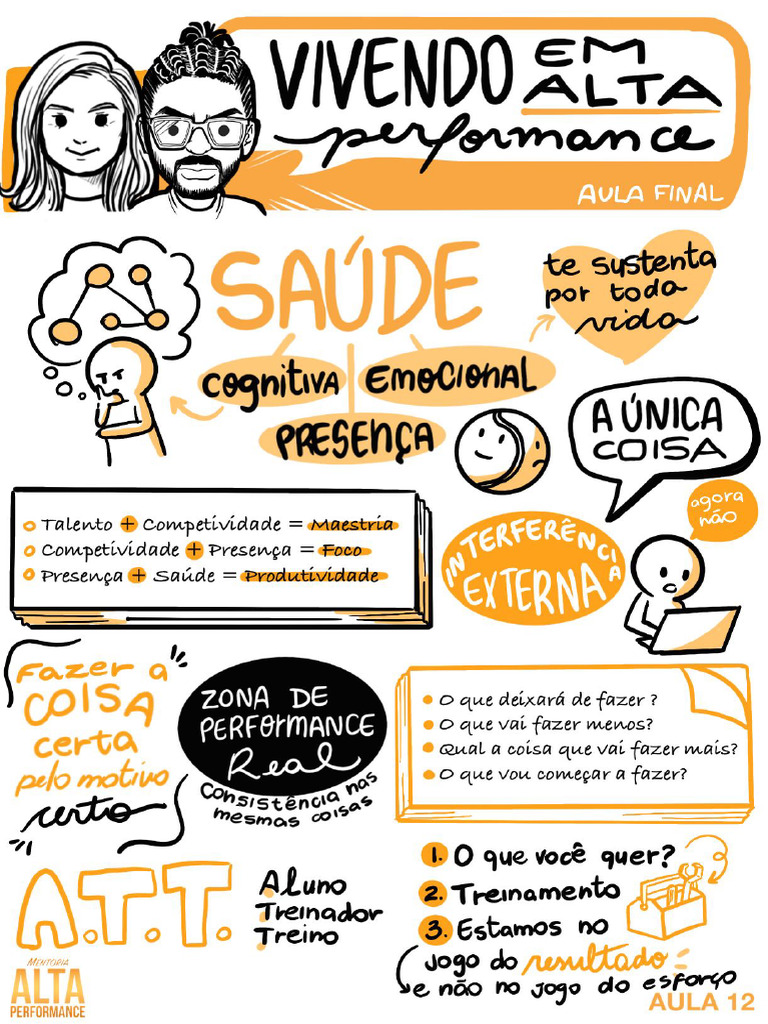 VIVENDO EM ALTA
performance
AULA FINAL
SAÚDE
te sustenta
por toda
vida
COGNITIVA
EMOCIONAL
PRESENÇA
A ÚNICA
COISA
agora
não
Talento + Competividade = Maestria
Competividade + Presença = Foco
Presença + Saúde = Produtividade
INTERFERÊNCIA
EXTERNA
Fazer a
COISA
certa
pelo motivo
certo
ZONA DE
PERFORMANCE
Real
Consistência nas
mesmas coisas
O que deixará de fazer ?
O que vai fazer menos?
Qual a coisa que vai fazer mais?
O que vou começar a fazer?
A.T.T.
Aluno
Treinador
Treino
1. O que você quer?
2. Treinamento
3. Estamos no
jogo do resultado
e não no jogo do esforço
MENTORIA
ALTA
PERFORMANCE
AULA 12